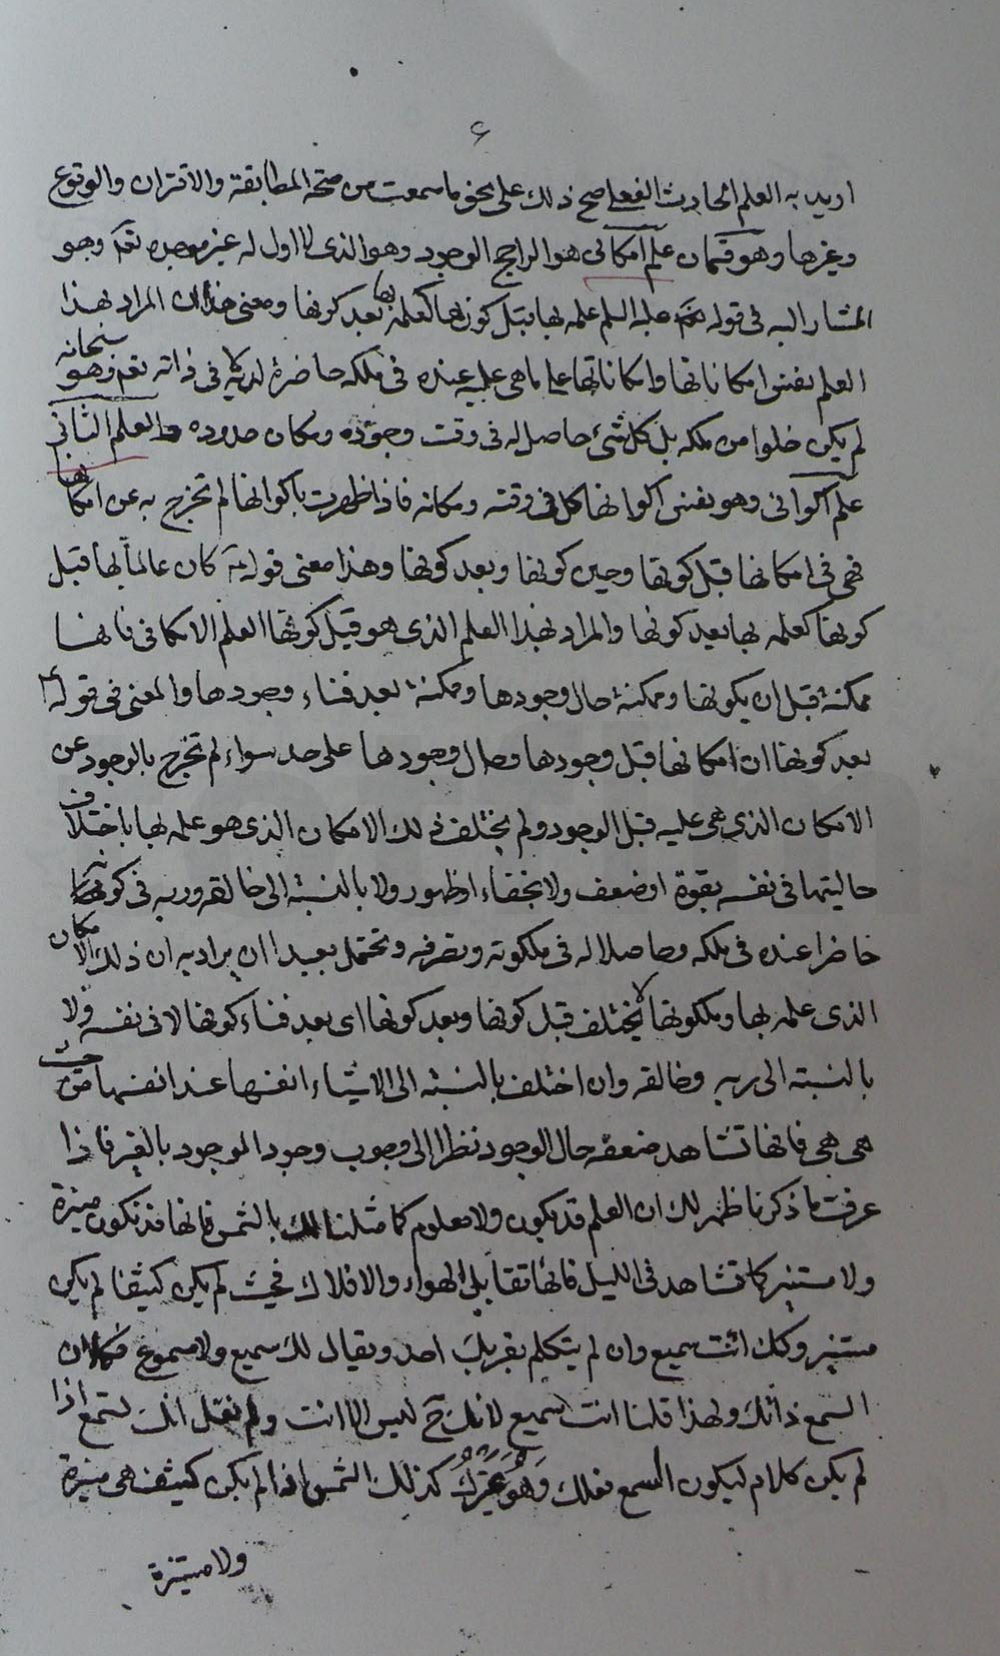 ٦
اريد به العلم الحادث الفعلي صح ذلك على نحو ما سمعت من صحة المطابقة والاقتران والوقوع
وغيرها وهو قسمان علم امكاني هو الراجح الوجود وهو الذي لا اول له غير موجده تعم وهو
المشار اليه في قوله عليه السلم علمه بها قبل كونها كعلمه بها بعد كونها ومعنى هذا ان المراد بهذا
العلم نفس امكاناتها وامكاناتها على ما هي عليه عنده في ملكه حاضرة لديه لا في ذاته تعم وهو سبحانه
لم يكن خلوا من ملكه بل كل شئ حاصل له في وقت وجوده ومكان حدوده والعلم الثاني
علم اكواني وهو نفس اكوانها كل في وقته ومكانه فاذا ظهرت باكوانها لم تخرج به عن امكانها
فهي في امكانها قبل كونها وحين كونها وبعد كونها وهذا معنى قوله كان عالما بها قبل
كونها كعلمه بها بعد كونها والمراد بهذا العلم الذي هو قبل كونها العلم الامكاني فانها
ممكنة قبل ان يكونها وممكنة حال وجودها وممكنة بعد فناء وجودها والمعنى في قوله
بعد كونها ان امكانها قبل وجودها وحال وجودها على حد سواء لم تخرج بالوجود عن
الامكان الذي هي عليه قبل الوجود ولم يختلف ذلك الامكان الذي هو علمه بها باختلاف
حالتيها في نفسه بقوة او ضعف ولا بخفاء او ظهور ولا بالنسبة الى خالقه وربه في كونه
حاضرا عنده في ملكه وحاصلا له في ملكوته وتصرفه ويحتمل بعيدا ان يراد به ان ذلك الامكان
الذي علمه بها وملكوتها لا يختلف قبل كونها وبعد كونها اي بعد فناء كونها لا في نفسه ولا
بالنسبة الى ربه وخالقه وان اختلف بالنسبة الى الاشياء انفسها عند انفسها من حيث
هي هي فانها تشاهد ضعفه حال الوجود نظرا الى وجوب وجود الموجود بالغير فاذا
عرفت ما ذكرنا ظهر لك ان العلم قد يكون ولا معلوم كما مثلنا لك بالشمس فانها قد تكون منيرة
ولا مستنير كما تشاهد في الليل فانها تقابل الهواء والافلاك فحيث لم يكن كثيفا لم يكن
مستنير وكك انت سميع وان لم يتكلم بقربك احد ويقال لك سميع ولا مسموع فكان
السمع ذاتك ولهذا قلنا انت سميع لانك ح ليس الا انت ولم نقل انك تسمع اذا
لم يكن كلام ليكون السمع فعلك وهو غيرك كذلك الشمس اذا لم يكن كثيف هي منيرة
ولا مستنيرة